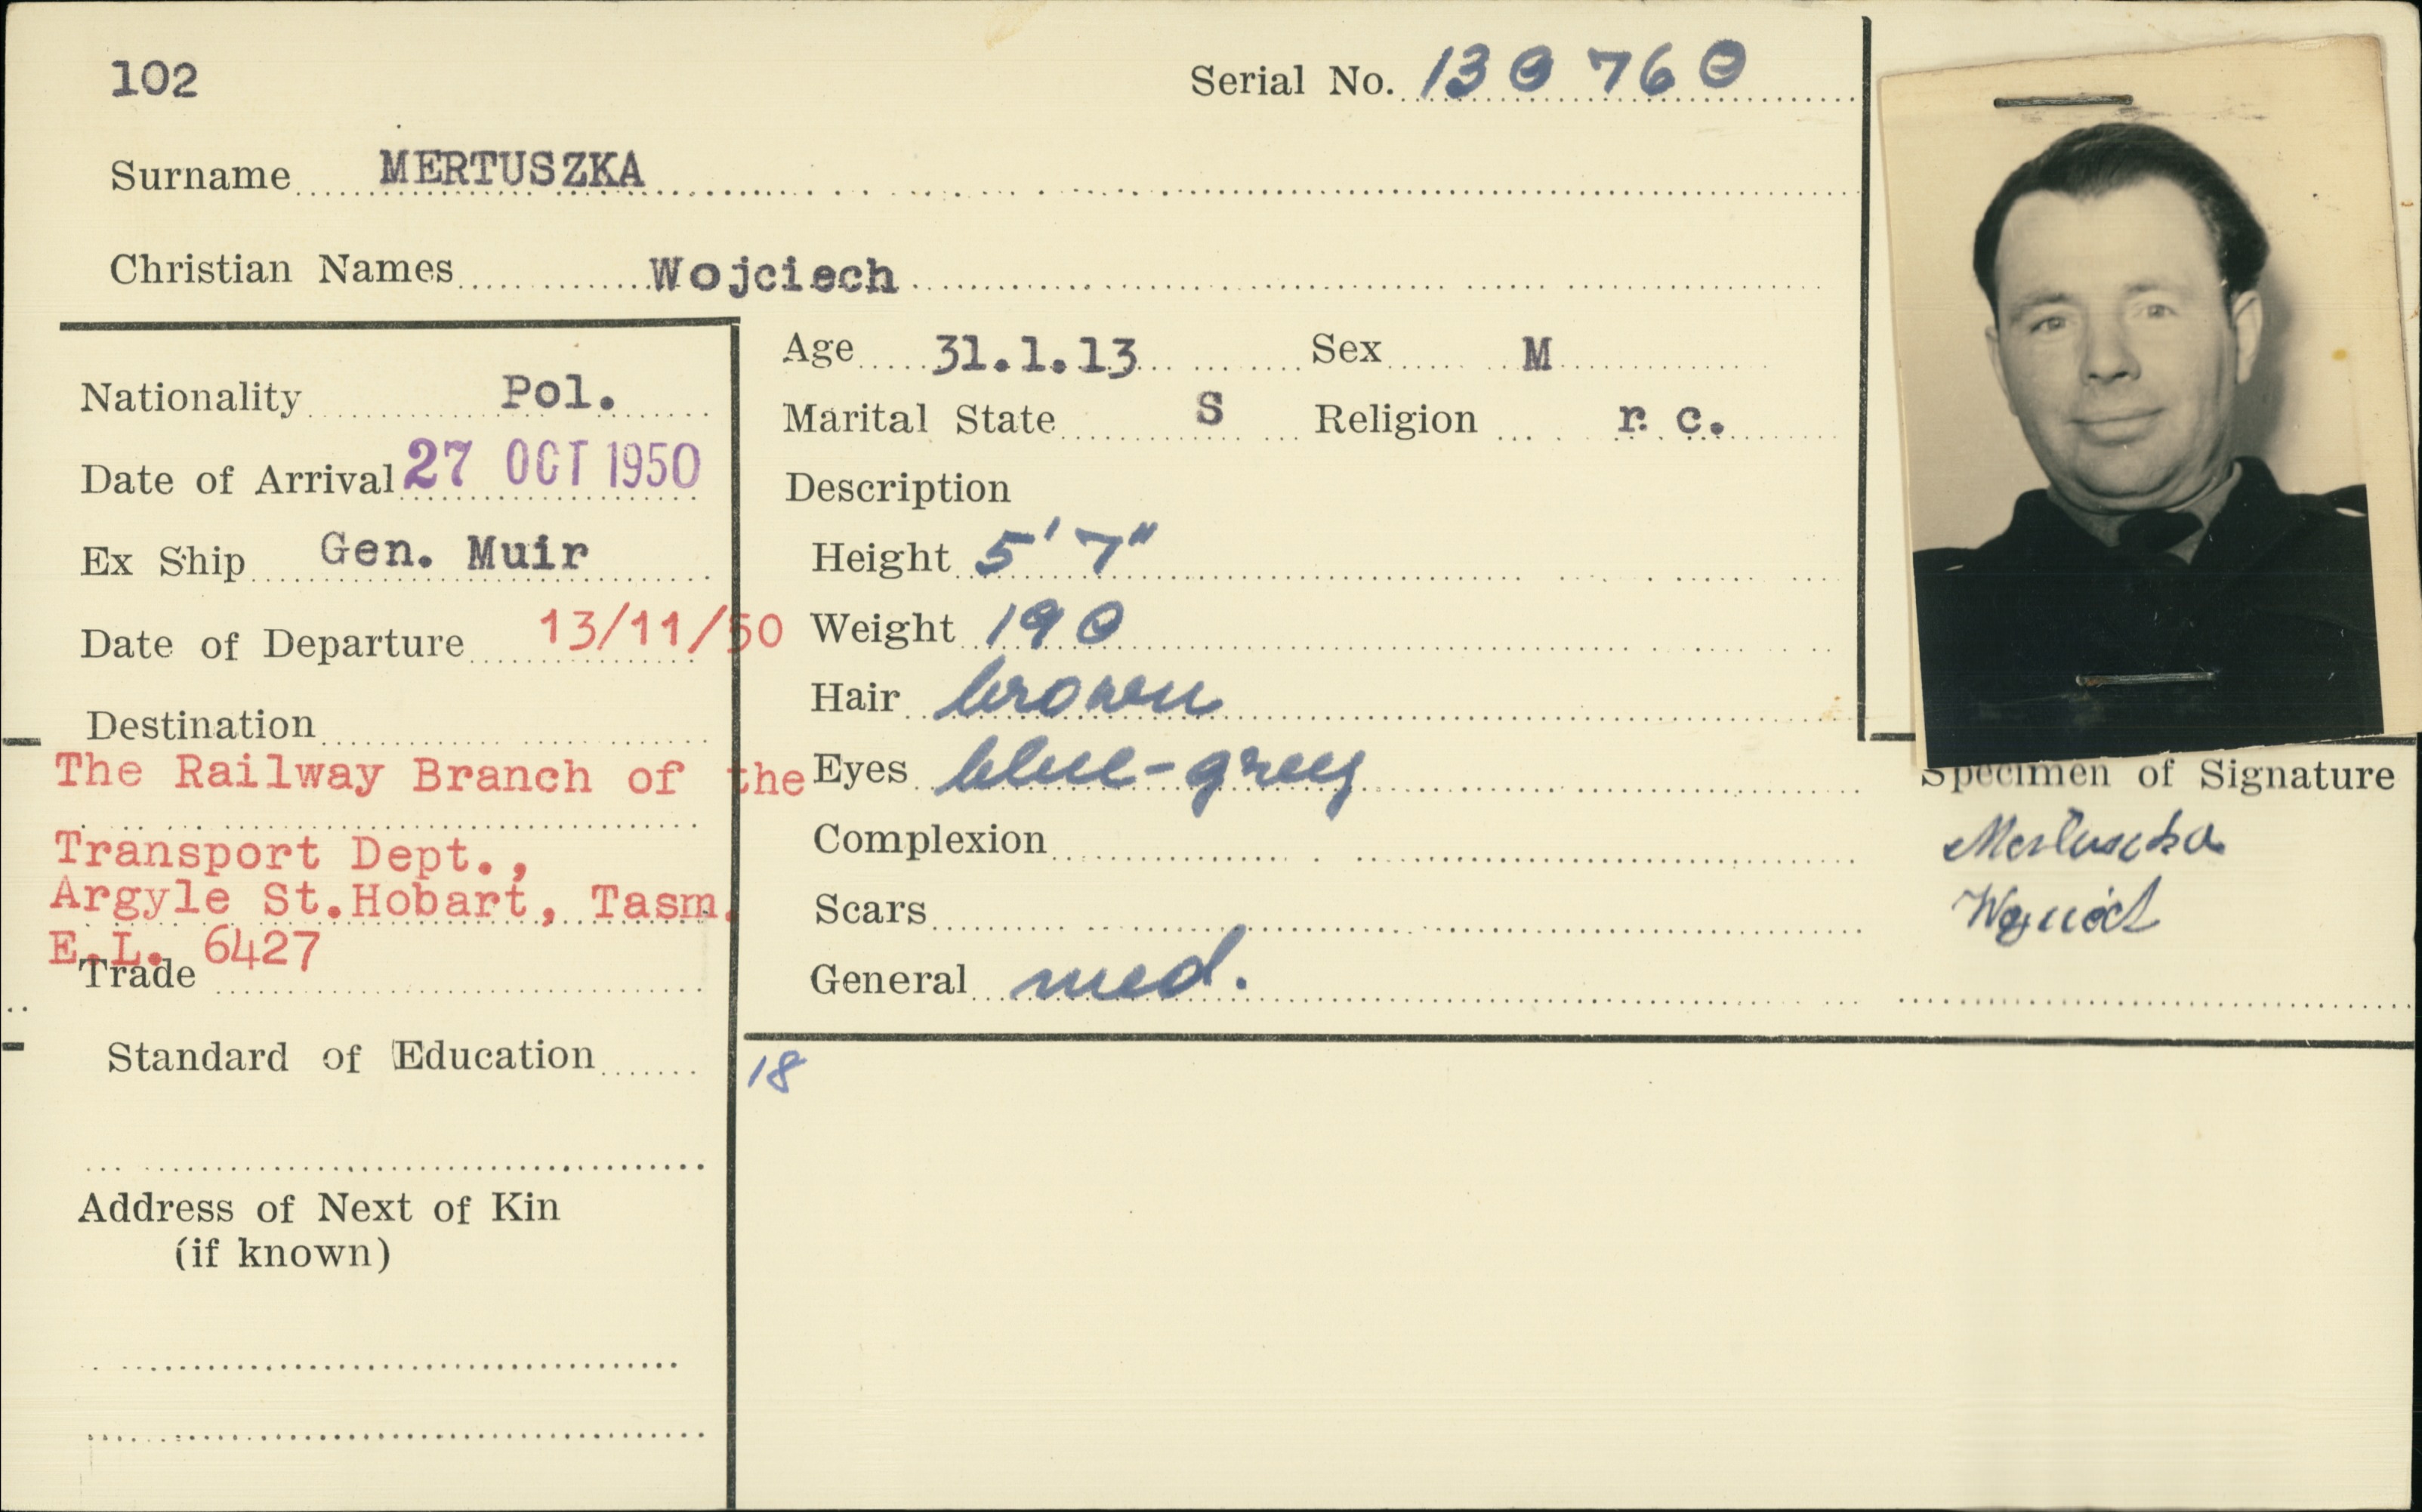 102
Serial No. 130760
Surname MERTUSZKA
Christian Names Wojciech
Nationality Pol.
Date of Arrival 27 OCT 1950
Ex Ship Gen. Muir
Date of Departure 13/11/50
Destination
The Railway Branch of the
Transport Dept.,
Argyle St.Hobart, Tasm.
E.L. 6427
Trade
Standard of Education
Address of Next of Kin
(if known)
Age 31.1.13 Sex M
Marital State S Religion r.c.
Description
Height 5'7"
Weight 190
Hair brown
Eyes blue-grey
Complexion
Scars
General med.
18
Specimen of Signature